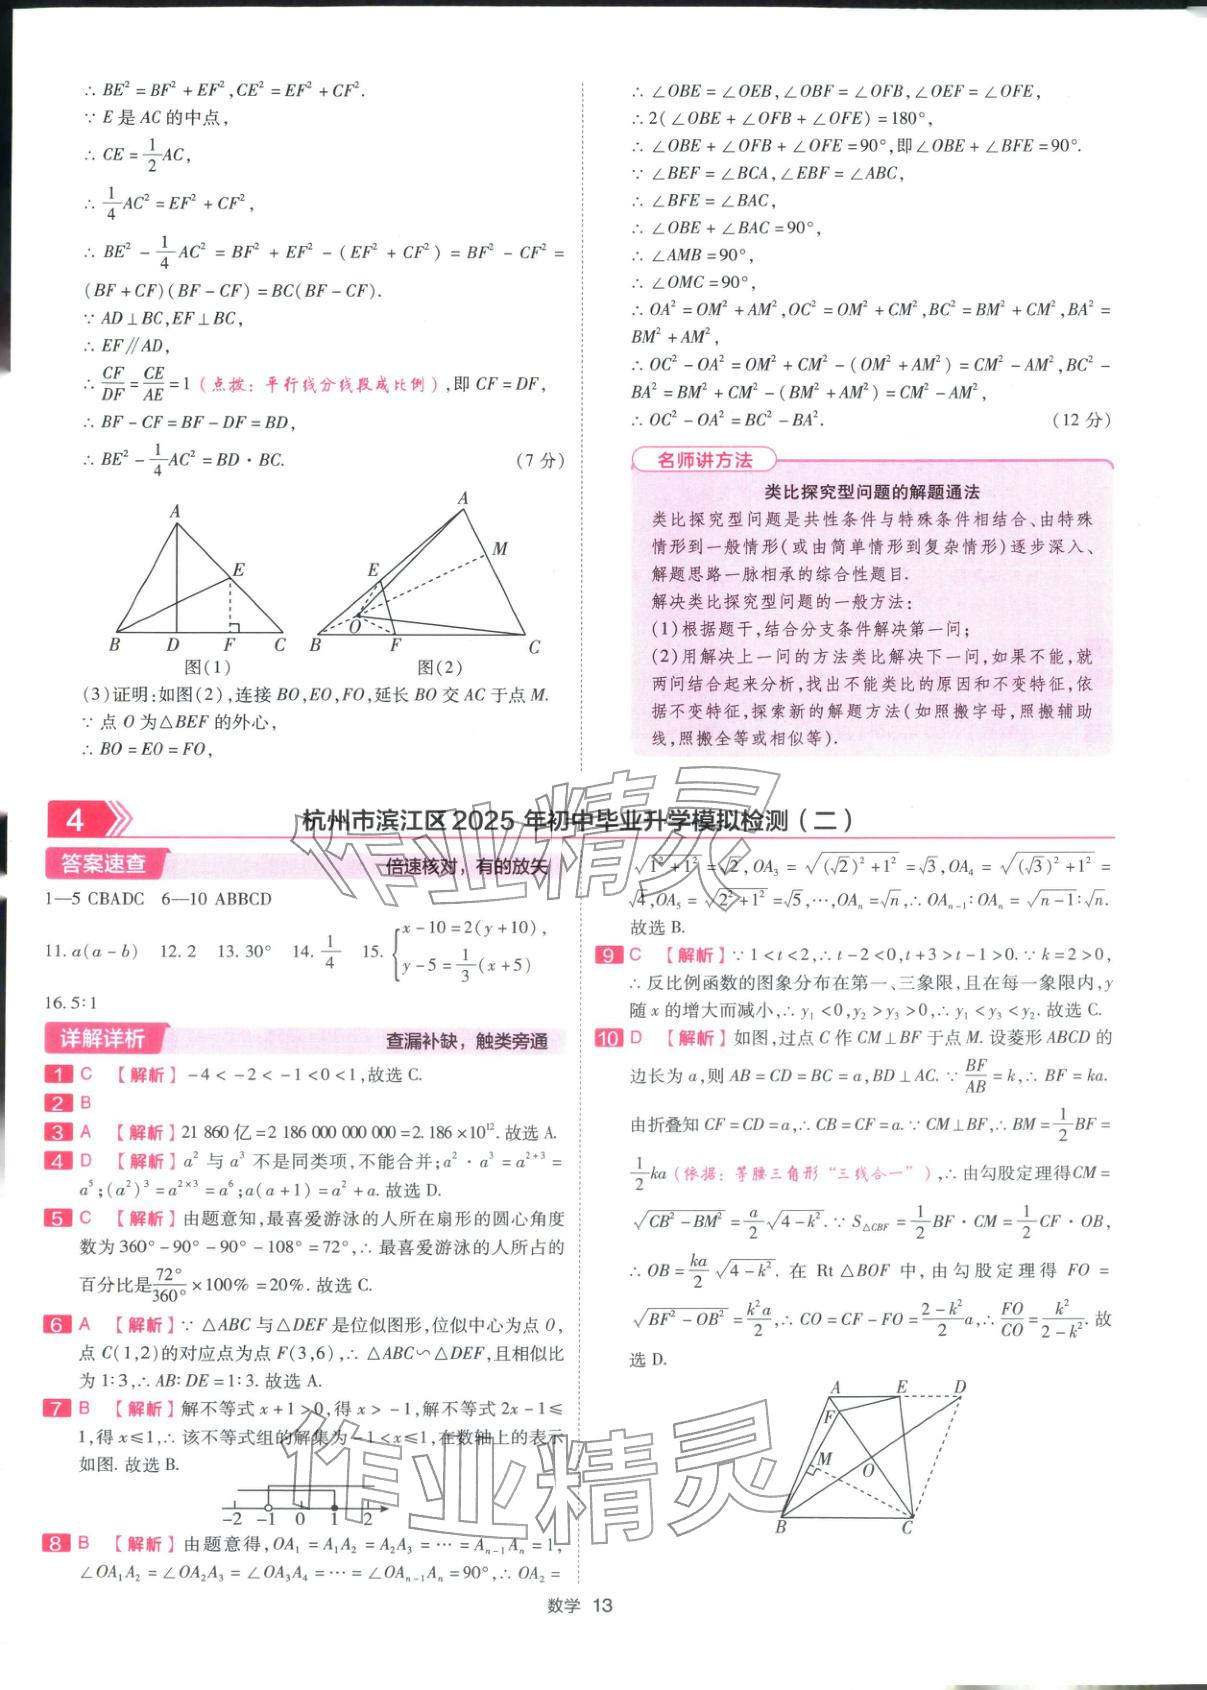 ∴ BE² = BF² + EF², CE² = EF² + CF².
∵ E 是 AC 的中点,
∴ CE = 1/2 AC,
∴ 1/4 AC² = EF² + CF²,
∴ BE² - 1/4 AC² = BF² + EF² - (EF² + CF²) = BF² - CF² =
(BF + CF)(BF - CF) = BC(BF - CF).
∵ AD⊥BC, EF⊥BC,
∴ EF∥AD,
∴ CF/DF = CE/AE = 1 (点拨: 平行线分线段成比例), 即 CF = DF,
∴ BF - CF = BF - DF = BD,
∴ BE² - 1/4 AC² = BD · BC. (7 分)
A E B D F C
图(1)
A M E O B F C
图(2)
(3)证明:如图(2),连接 BO,EO,FO,延长 BO 交 AC 于点 M.
∵ 点 O 为△BEF 的外心,
∴ BO = EO = FO,
∴ ∠OBE = ∠OEB, ∠OBF = ∠OFB, ∠OEF = ∠OFE,
∴ 2(∠OBE + ∠OFB + ∠OFE) = 180°,
∴ ∠OBE + ∠OFB + ∠OFE = 90°, 即∠OBE + ∠BFE = 90°.
∵ ∠BEF = ∠BCA, ∠EBF = ∠ABC,
∴ ∠BFE = ∠BAC,
∴ ∠OBE + ∠BAC = 90°,
∴ ∠AMB = 90°,
∴ ∠OMC = 90°,
∴ OA² = OM² + AM², OC² = OM² + CM², BC² = BM² + CM², BA² =
BM² + AM²,
∴ OC² - OA² = OM² + CM² - (OM² + AM²) = CM² - AM², BC² -
BA² = BM² + CM² - (BM² + AM²) = CM² - AM²,
∴ OC² - OA² = BC² - BA². (12 分)
名师讲方法
类比探究型问题的解题通法
类比探究型问题是共性条件与特殊条件相结合、由特殊
情形到一般情形(或由简单情形到复杂情形)逐步深入、
解题思路一脉相承的综合性题目.
解决类比探究型问题的一般方法:
(1)根据题干,结合分支条件解决第一问;
(2)用解决上一问的方法类比解决下一问,如果不能,就
两问结合起来分析,找出不能类比的原因和不变特征,依
据不变特征,探索新的解题方法(如照搬字母,照搬辅助
线,照搬全等或相似等).
4 杭州市滨江区 2025 年初中毕业升学模拟检测(二)
答案速查 倍速核对,有的放矢
1—5 CBADC 6—10 ABBCD
11. a(a-b) 12. 2 13. 30° 14. 1/4 15. { x-10=2(y+10), y-5=1/3(x+5)
16. 5∶1
详解详析 查漏补缺,触类旁通
1 C 【解析】 -4 < -2 < -1 < 0 < 1, 故选 C.
2 B
3 A 【解析】21 860 亿 = 2 186 000 000 000 = 2.186×10¹². 故选 A.
4 D 【解析】a² 与 a³ 不是同类项,不能合并; a² · a³ = a²⁺³ =
a⁵; (a²)³ = a²ˣ³ = a⁶; a(a+1) = a² + a. 故选 D.
5 C 【解析】由题意知,最喜爱游泳的人所在扇形的圆心角度
数为 360° - 90° - 90° - 108° = 72°, ∴ 最喜爱游泳的人所占的
百分比是 72°/360° × 100% = 20%. 故选 C.
6 A 【解析】∵ △ABC 与△DEF 是位似图形,位似中心为点 O,
点 C(1,2)的对应点为点 F(3,6), ∴ △ABC∽△DEF, 且相似比
为 1∶3, ∴ AB∶DE = 1∶3. 故选 A.
7 B 【解析】解不等式 x+1>0, 得 x>-1, 解不等式 2x-1≤
1, 得 x≤1, ∴ 该不等式组的解集为 -1<x≤1, 在数轴上的表示
如图. 故选 B.
-2 -1 0 1 2
8 B 【解析】由题意得, OA₁ = A₁A₂ = A₂A₃ = … = Aₙ₋₁Aₙ = 1,
∠OA₁A₂ = ∠OA₂A₃ = ∠OA₃A₄ = … = ∠OAₙ₋₁Aₙ = 90°, ∴ OA₂ =
√(1²+1²) = √2, OA₃ = √((√2)²+1²) = √3, OA₄ = √((√3)²+1²) =
√4, OA₅ = √(2²+1²) = √5, …, OAₙ = √n, ∴ OAₙ₋₁∶OAₙ = √(n-1)∶√n.
故选 B.
9 C 【解析】∵ 1<t<2, ∴ t-2<0, t+3>t-1>0. ∵ k=2>0,
∴ 反比例函数的图象分布在第一、三象限,且在每一象限内, y
随 x 的增大而减小, ∴ y₁<0, y₂>y₃>0, ∴ y₁<y₃<y₂. 故选 C.
10 D 【解析】如图,过点 C 作 CM⊥BF 于点 M. 设菱形 ABCD 的
边长为 a, 则 AB = CD = BC = a, BD⊥AC. ∵ BF/AB = k, ∴ BF = ka.
由折叠知 CF = CD = a, ∴ CB = CF = a. ∵ CM⊥BF, ∴ BM = 1/2 BF =
1/2 ka (依据: 等腰三角形“三线合一”), ∴ 由勾股定理得 CM =
√(CB² - BM²) = a/2 √(4-k²). ∵ S△CBF = 1/2 BF · CM = 1/2 CF · OB,
∴ OB = ka/2 √(4-k²). 在 Rt△BOF 中,由勾股定理得 FO =
√(BF² - OB²) = k²a/2, ∴ CO = CF - FO = (2-k²)/2 a, ∴ FO/CO = k²/(2-k²). 故
选 D.
A E D F M O B C
数学 13
作业精灵
作业精灵